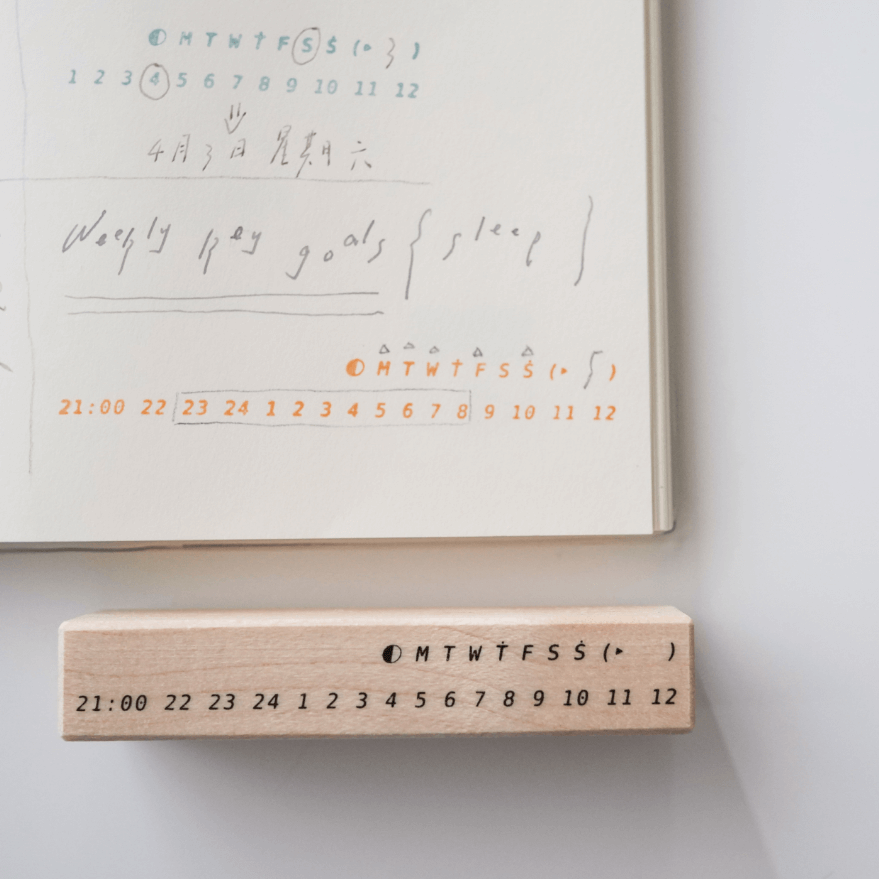 ◐ M T W Ṫ F S Ṡ (▸ 3 )
1 2 3 4 5 6 7 8 9 10 11 12
4月3日 星期六
Weekly key goals { sleep }
◐ M T W Ṫ F S Ṡ (▸ 5 )
21:00 22 23 24 1 2 3 4 5 6 7 8 9 10 11 12
◐ M T W Ṫ F S Ṡ (▸ )
21:00 22 23 24 1 2 3 4 5 6 7 8 9 10 11 12